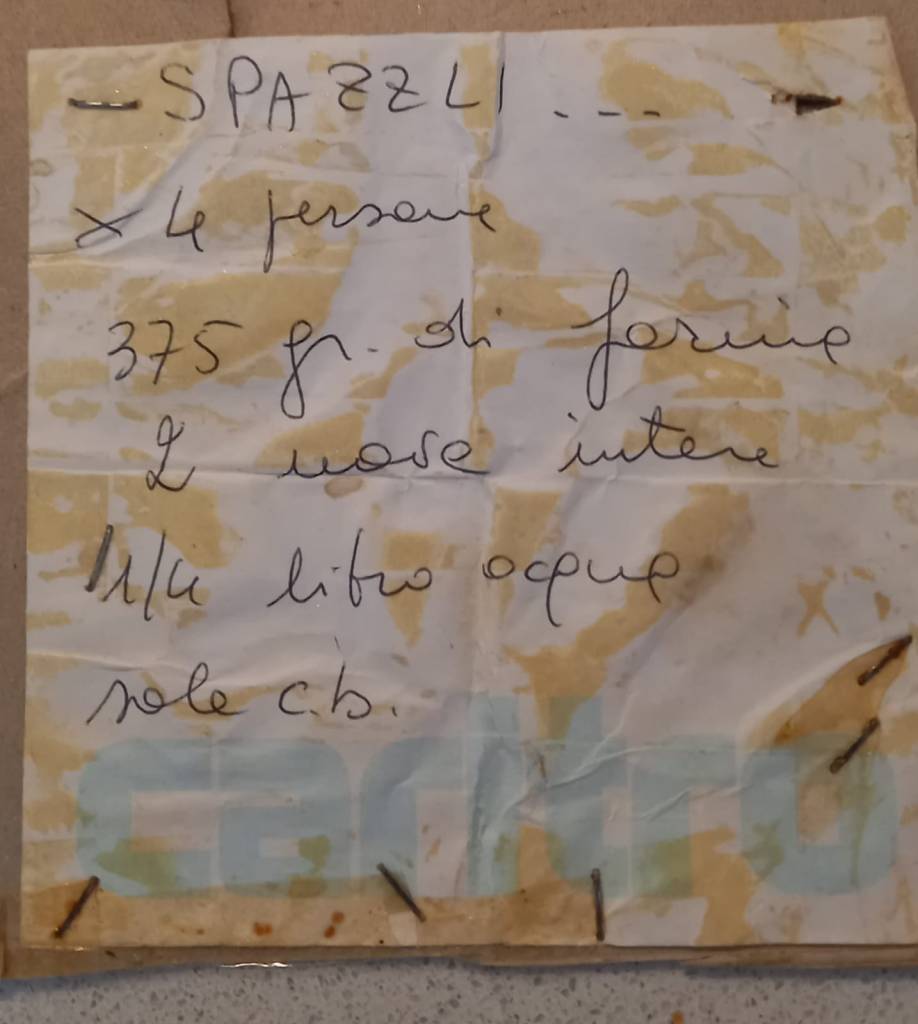 - SPAZZLI ...
x 4 persone
375 gr. di farina
2 uova intere
1/4 litro acqua
sale c.b.
caritro